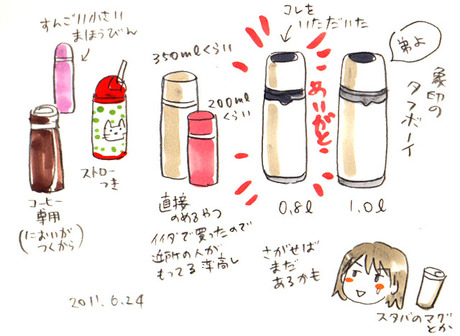 すんごい小さい
まほうびん
コーヒー
専用
(においが
つくから)
ストロー
つき
350mlくらい
200ml
くらい
直接
のめるやつ
イイダで買ったので
近所の人が
もってる率高し
コレを
いただいた
ありがと
0.8l
弟よ
象印の
タフボーイ
1.0l
さがせば
まだ
あるかも
スタバのマグ
とか
2011.6.24